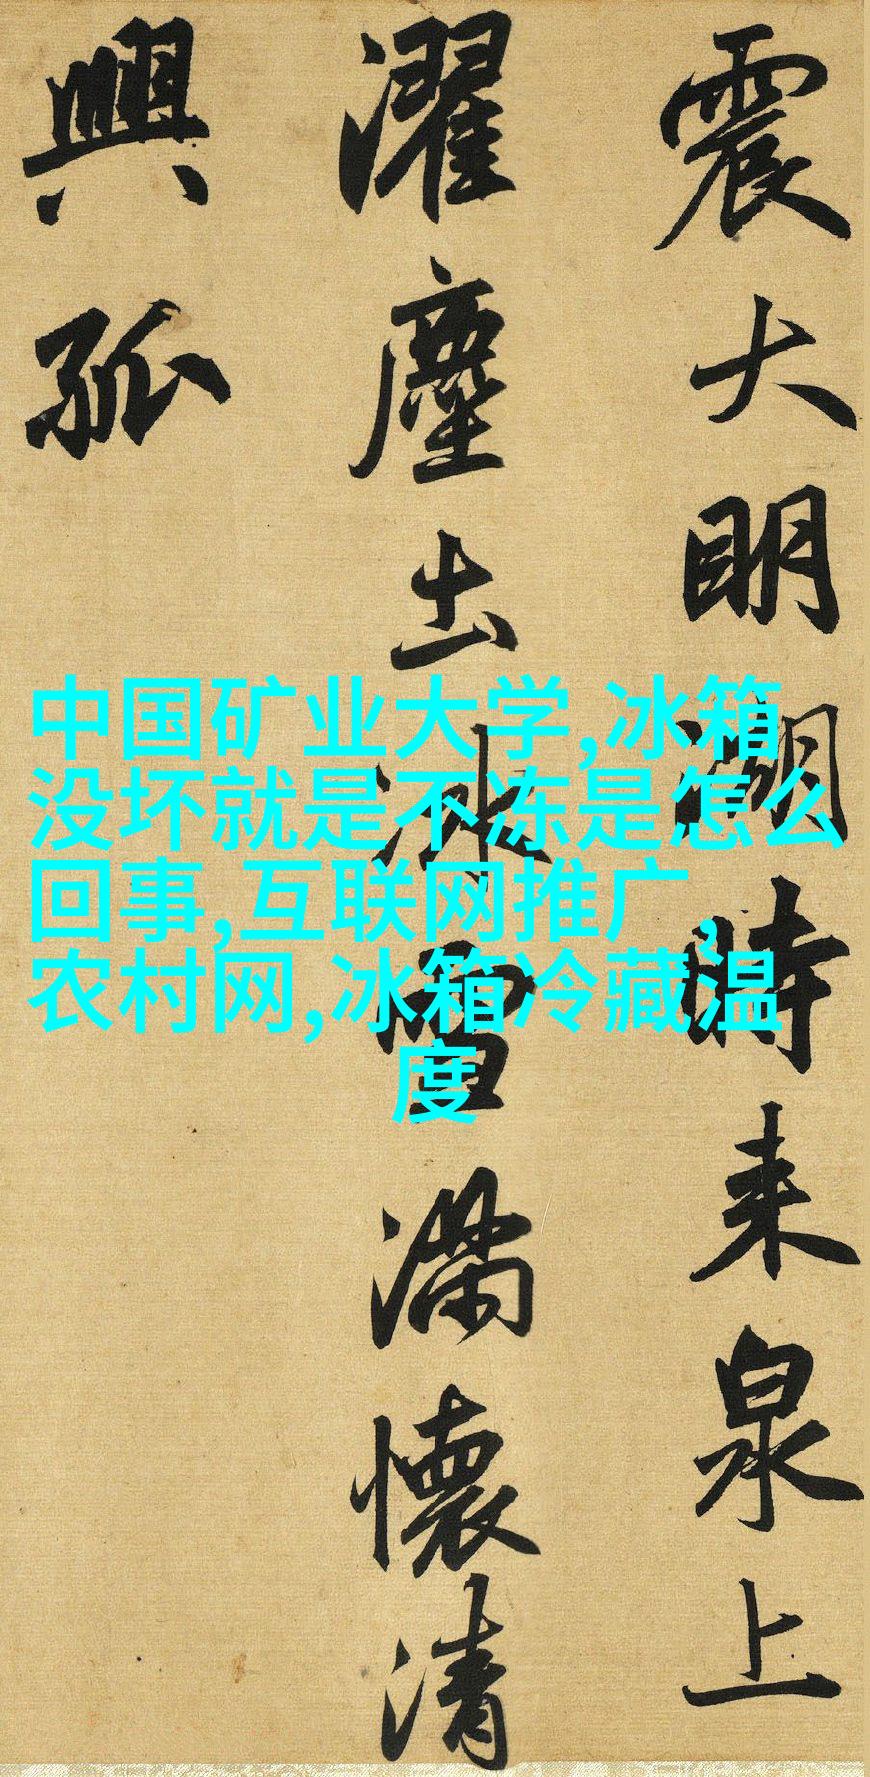 震大明湖時来泉上
濯塵土冰雪滿懷清
興孤
中国矿业大学,冰箱
没坏就是不冻是怎么
回事,互联网推广,
农村网,冰箱冷藏温
度